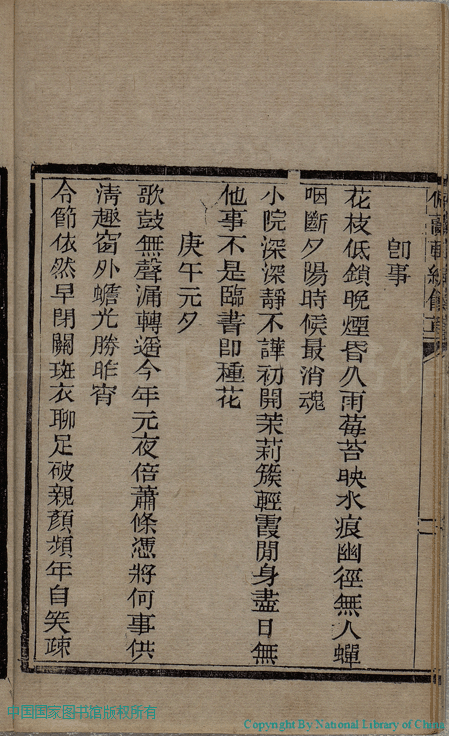 卽事
花枝低鎖晚煙昏久雨莓苔映水痕幽徑無人蟬
咽斷夕陽時候最消魂
小院深深靜不譁初開茉莉簇輕霞閒身盡日無
他事不是臨書卽種花
庚午元夕
歌鼓無聲漏轉遥今年元夜倍蕭條憑將何事供
淸趣窗外蟾光勝昨宵
令節依然早閉關斑衣聊足破親顏頻年自笑疎
中国国家图书馆版权所有
Copyright By National Library of China